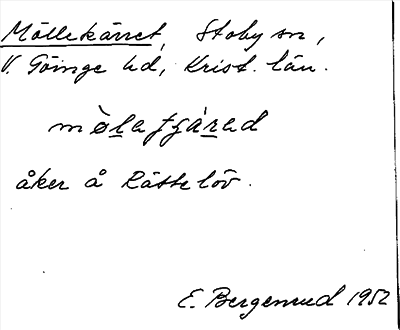 Möllekärret, Stoby sn,
V. Göinge hd, Krist. län.
åker å Röttelöv.
E. Bergenrud 1952